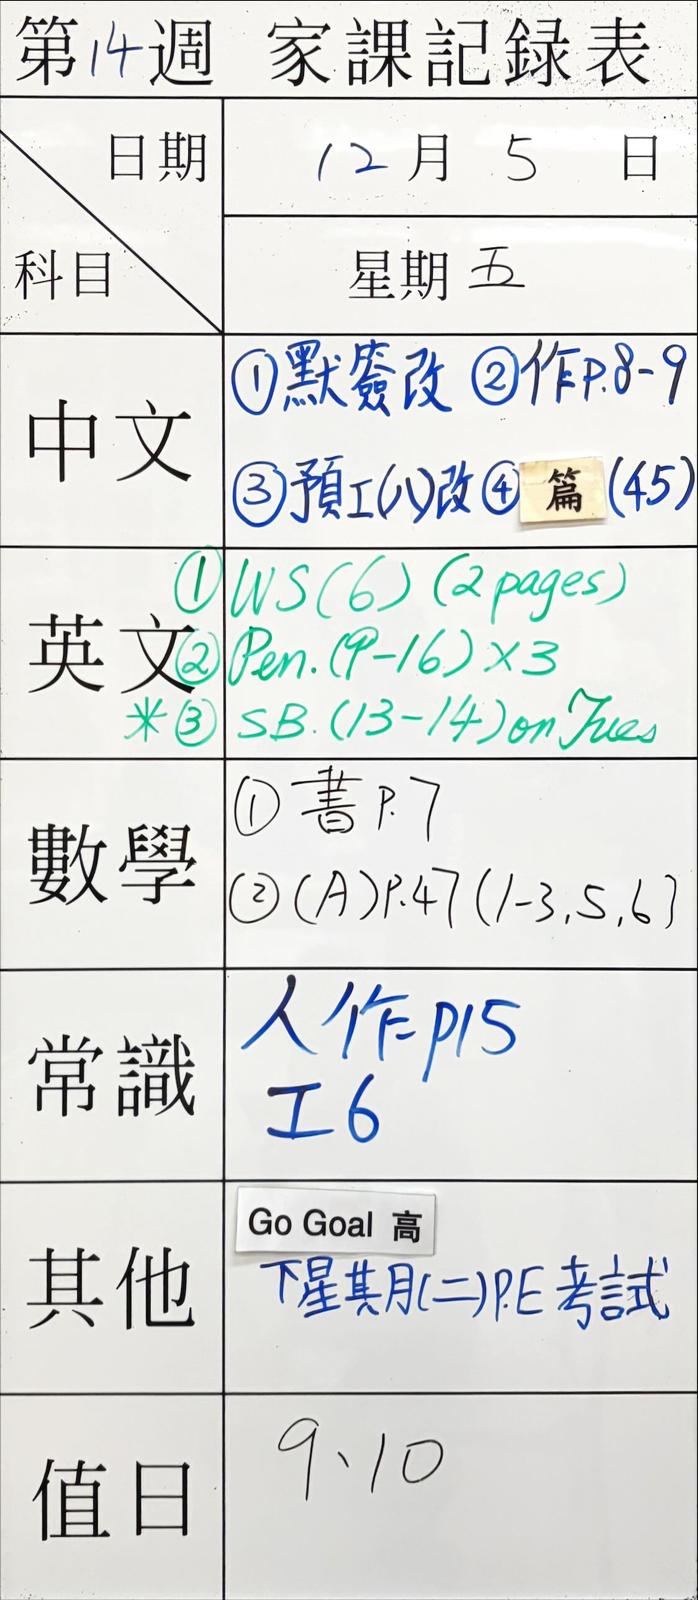 第14週 家課記録表
日期
12月5日
科目
星期五
中文
①默簽改 ②作P.8-9
③預工(八)改④篇(45)
英文
①WS(6) (2pages)
②Pen.(9-16)×3
*③SB.(13-14)on Tues
數學
①書P.7
②(A)P.47(1-3,5,6)
常識
人作p15
工6
其他
Go Goal 高
下星其月(二)P.E考試
值日
9、10